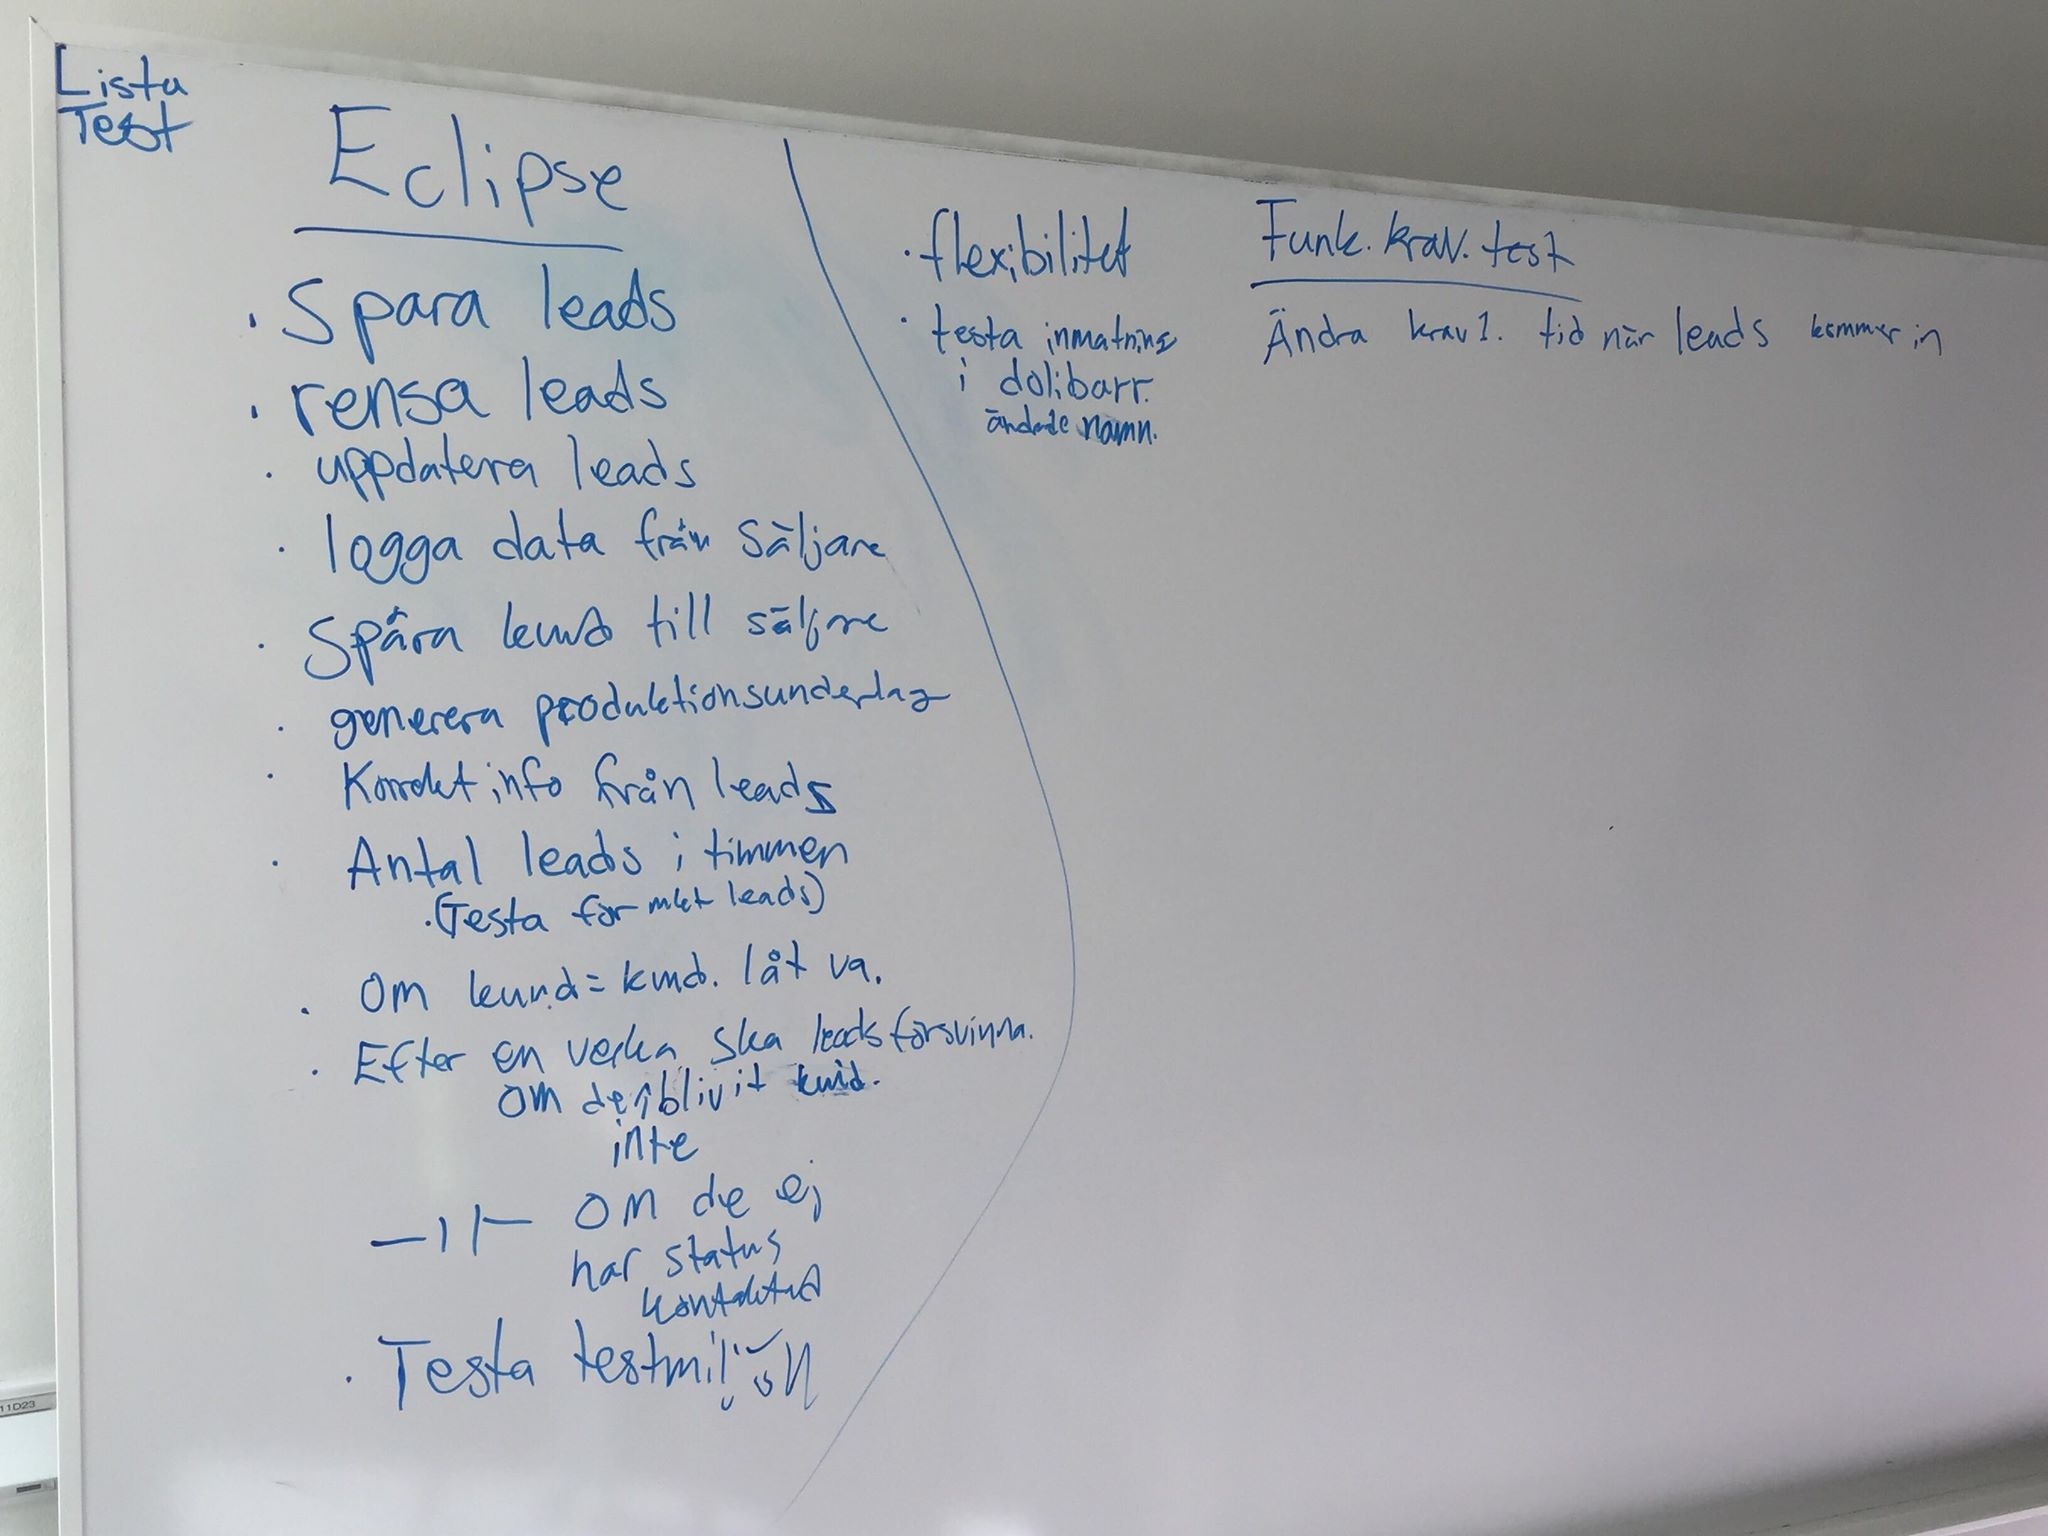 Lista
Test
Eclipse
· Spara leads
· rensa leads
· uppdatera leads
· logga data från säljare
· Spåra kund till säljare
· generera produktionsunderlag
· Korrekt info från leads
· Antal leads i timmen
· (Testa för mkt leads)
· Om kund = kund. låt va.
· Efter en vecka ska leads försvinna.
om de blivit kund.
inte
—||— om de ej
har status
kontaktad
· Testa testmiljön
· flexibilitet
· testa inmatning
i dolibarr.
ändrade namn.
Funk. krav. test
Ändra krav 1. tid när leads kommer in
11D23